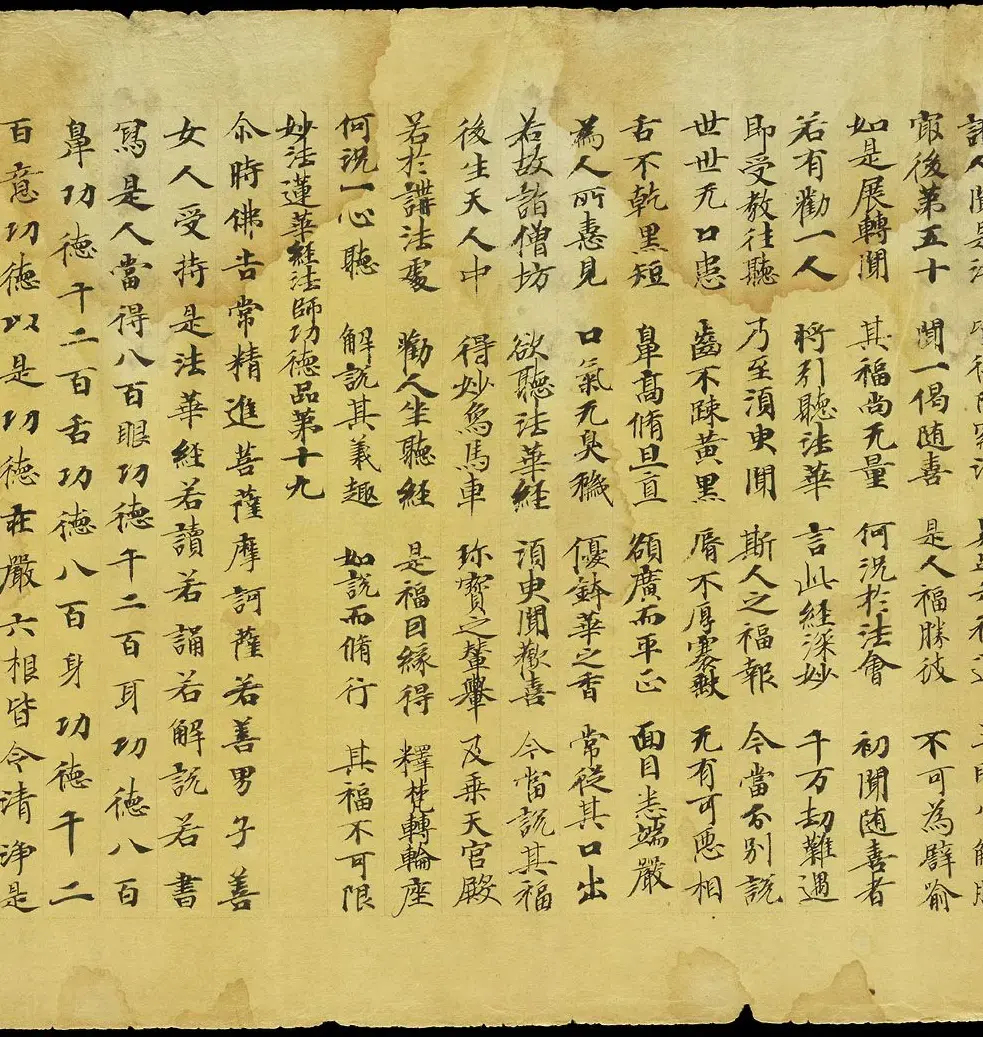 諸人聞是法
㝡後第五十 聞一偈随喜 是人福勝彼 不可為譬喻
如是展轉聞 其福尚无量 何況於法會 初聞随喜者
若有勸一人 將引聽法華 言此經深妙 千万劫難遇
即受教往聽 乃至湏臾聞 斯人之福報 今當分別說
世世无口患 齒不踈黃黑 脣不厚褰缺 无有可惡相
舌不乾黑短 鼻高脩且直 額廣而平正 面目悉端嚴
為人所憙見 口氣无臭穢 優鉢華之香 常從其口出
若故詣僧坊 欲聽法華經 湏臾聞歡喜 今當說其福
後生天人中 得妙象馬車 珎寶之輦轝 及乗天宮殿
若於講法處 勸人坐聽經 是福因緣得 釋梵轉輪座
何況一心聽 解說其義趣 如說而脩行 其福不可限
妙法蓮華經法師功德品第十九
尒時佛告常精進菩薩摩訶薩若善男子善
女人受持是法華經若讀若誦若解說若書
寫是人當得八百眼功德千二百耳功德八百
鼻功德千二百舌功德八百身功德千二
百意功德以是功德莊嚴六根皆令清淨是